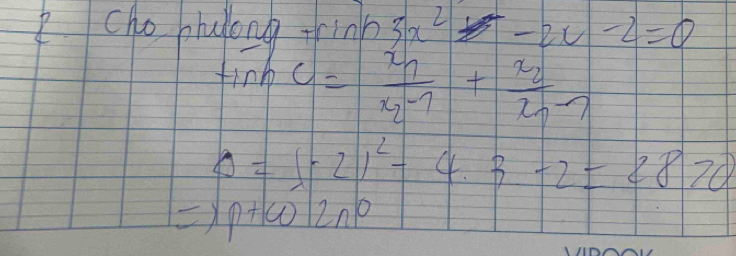 2. Cho phương trình 3x² - 2x - 2 = 0
tính C = x₁/(x₂-1) + x₂/(x₁-1)
Δ = (-2)² - 4.3.-2 = 28 > 0
=> pt có 2 n⁰